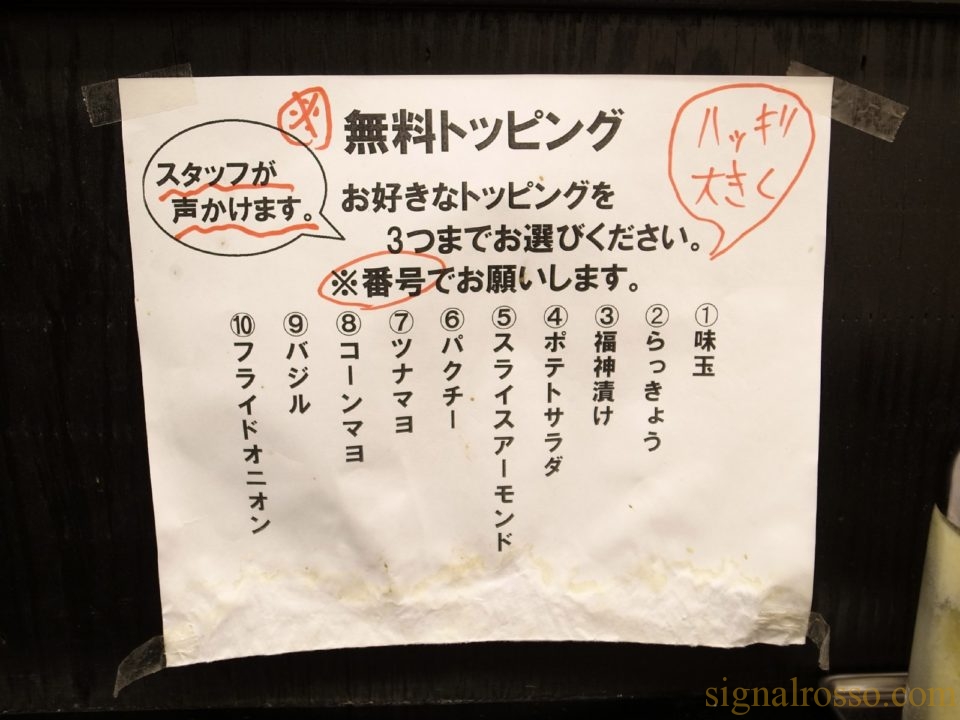 ※
無料トッピング
ハッキリ
大きく
スタッフが
声かけます。
お好きなトッピングを
3つまでお選びください。
※番号でお願いします。
①味玉
②らっきょう
③福神漬け
④ポテトサラダ
⑤スライスアーモンド
⑥パクチー
⑦ツナマヨ
⑧コーンマヨ
⑨バジル
⑩フライドオニオン
signalrosso.com